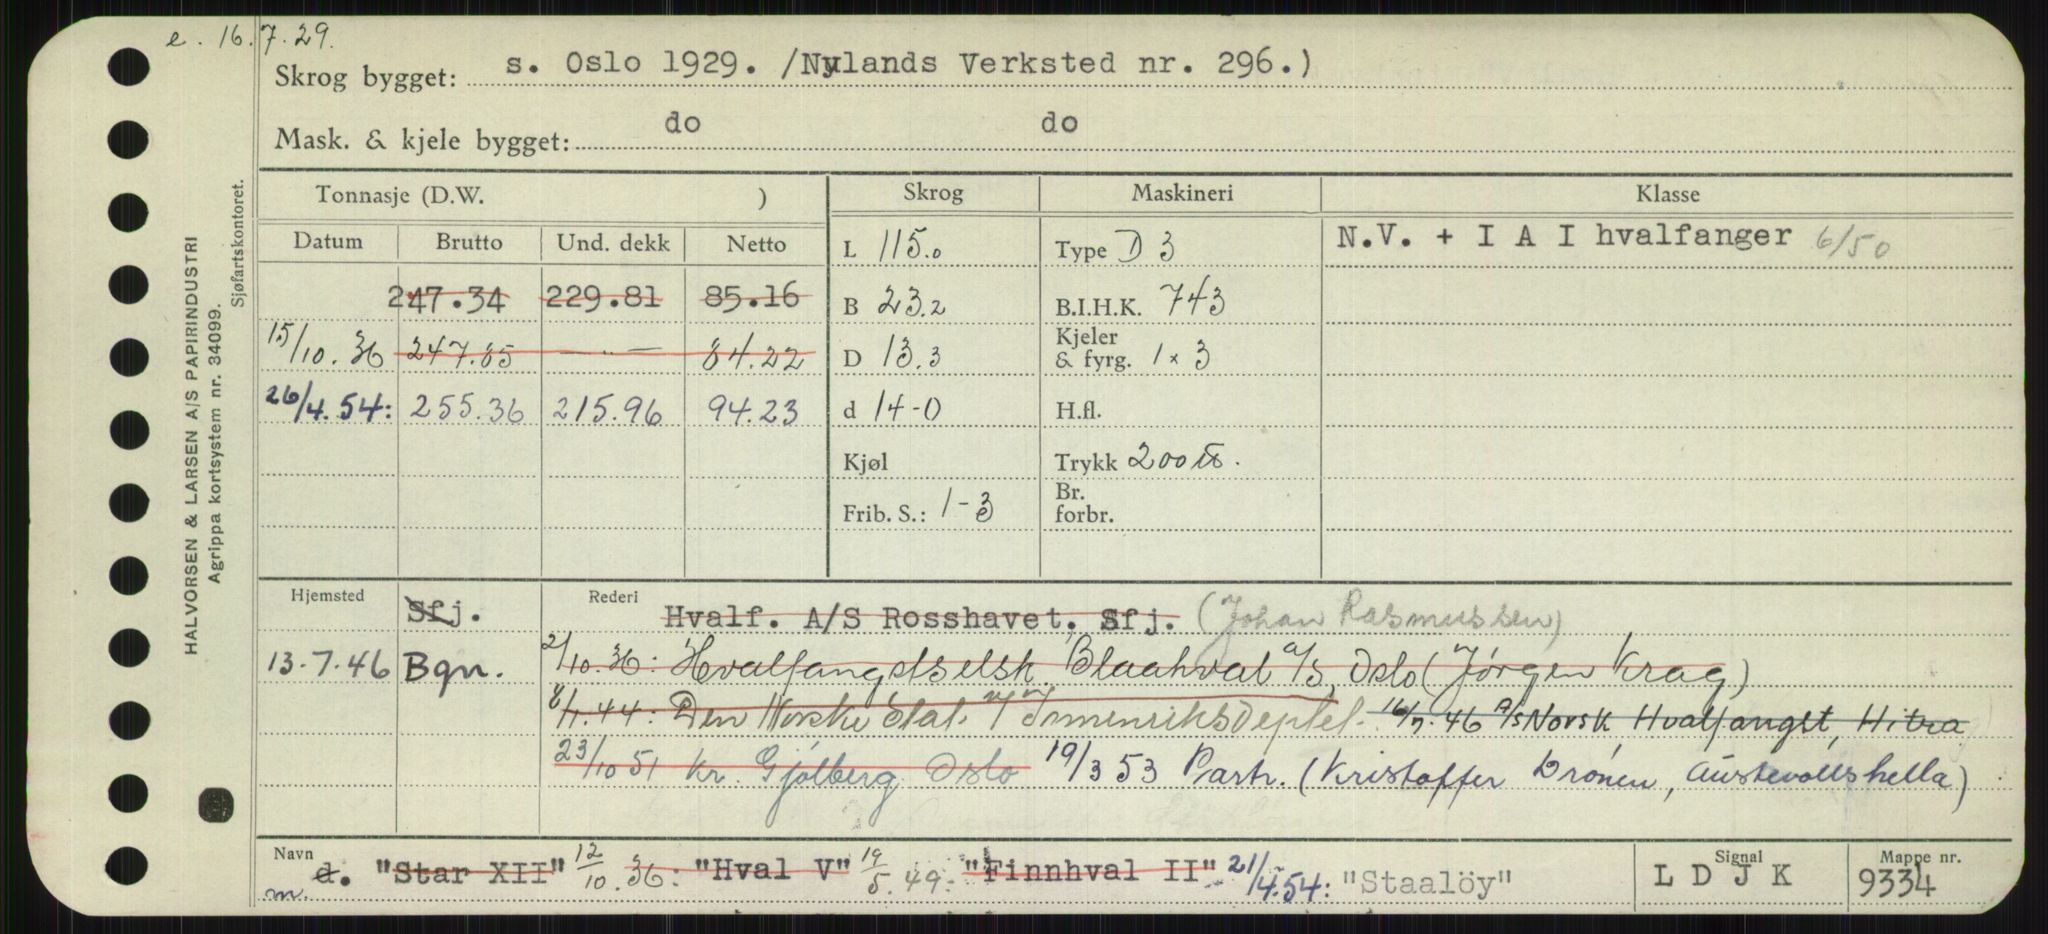 e. 16.7.29.
Skrog bygget: s. Oslo 1929. /Nylands Verksted nr. 296.)
Mask. & kjele bygget: do do
HALVORSEN & LARSEN A/S PAPIRINDUSTRI
Agrippa kortsystem nr. 34099.
Sjøfartskontoret.
Tonnasje (D.W. ) Skrog Maskineri Klasse
Datum Brutto Und. dekk Netto L 115.0 Type D 3 N.V. + I A I hvalfanger 6/50
247.34 229.81 85.16 B 23.2 B.I.H.K. 743
15/10.36 247.85 —"— 84.22 D 13.3 Kjeler & fyrg. 1x3
26/4.54: 255.36 215.96 94.23 d 14-0 H.fl.
Kjøl Trykk 200 lb.
Frib. S.: 1-3 Br. forbr.
Hjemsted Sfj. Rederi Hvalf. A/S Rosshavet, Sfj. (Johan Rasmussen)
13.7.46 Bgn. 2/10.36: Hvalfangstselsk. Blaahval a/s, Oslo (Jørgen Krag)
8/1.44: Den Norske Stat v/ Innenriksdeptet. 16/7.46 A/S Norsk Hvalfangst, Hitra
23/10 51 Kr. Gjølberg Oslo 19/3 53 Partr. (Kristoffer Drönen, Austevollshella)
Navn d. "Star XII" 12/10.36: "Hval V" 19/5.49: "Finnhval II" 21/4.54: "Staalöy" Signal L D J K Mappe nr. 9334
m.